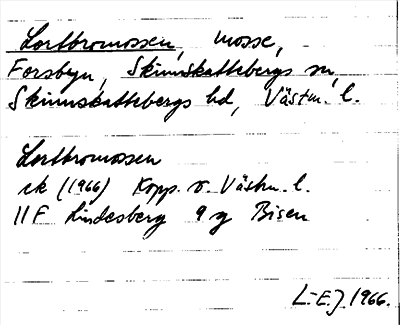 Lortbromossen, mosse,
Forsbyn, Skinnskattebergs sn,
Skinnskattebergs hd, Västm. l.
Lortbromossen
ek (1966) Kopp. o. Västm. l.
11F Lindesberg 9 g Bisen
L-E.J. 1966.